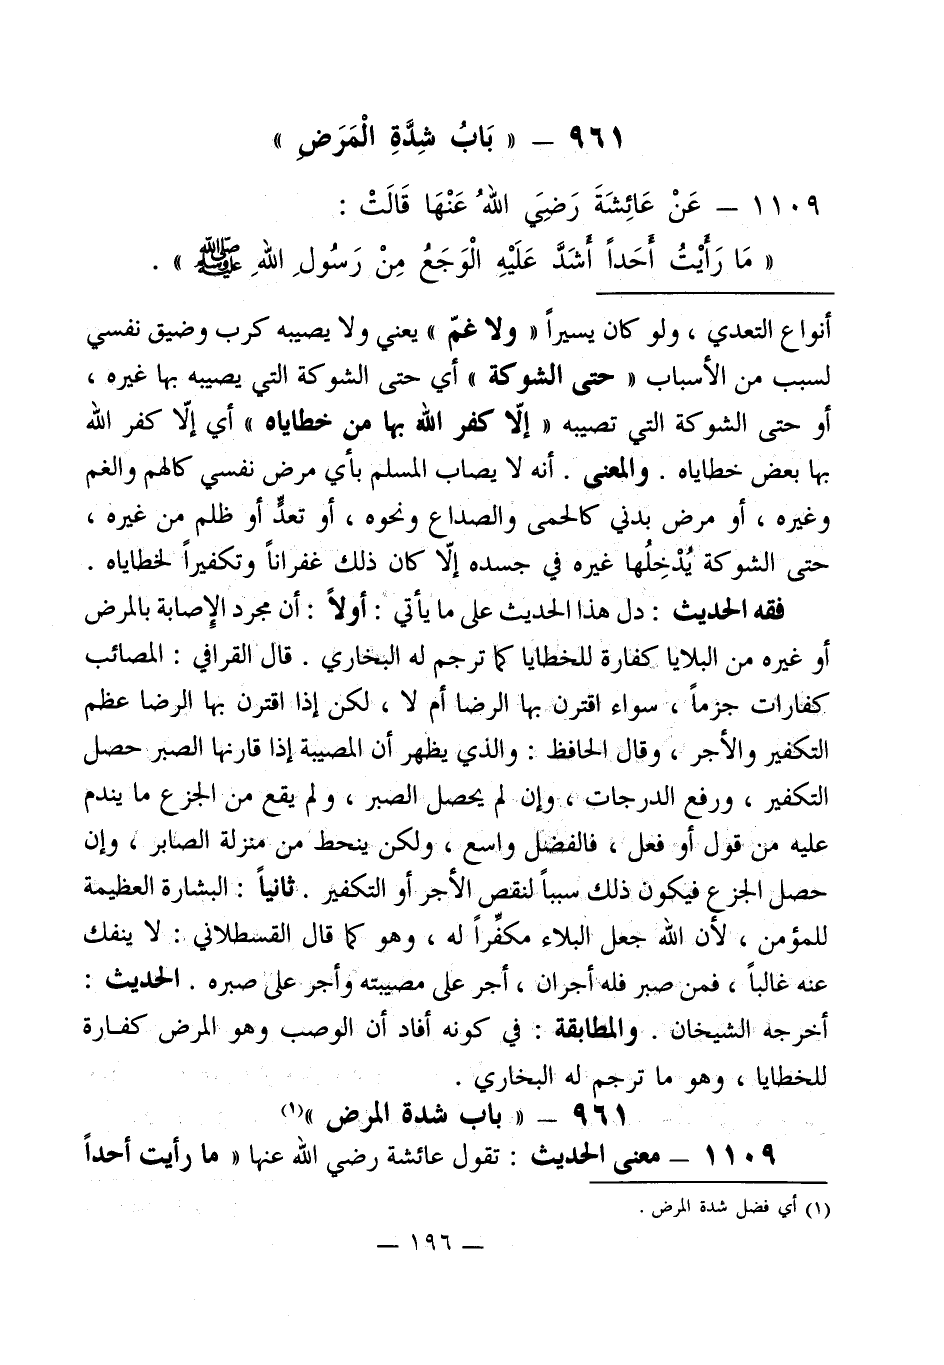 ٩٦١ – « بَابُ شِدَّةِ الْمَرَضِ »
١١٠٩ – عَنْ عَائِشَةَ رَضِيَ اللهُ عَنْهَا قَالَتْ :
« مَا رَأَيْتُ أَحَداً أَشَدَّ عَلَيْهِ الْوَجَعُ مِنْ رَسُولِ اللهِ ﷺ » .
أنواع التعدي ، ولو كان يسيراً « ولا غمّ » يعني ولا يصيبه كرب وضيق نفسي
لسبب من الأسباب « حتى الشوكة » أي حتى الشوكة التي يصيبه بها غيره ،
أو حتى الشوكة التي تصيبه « إلّا كفر الله بها من خطاياه » أي إلّا كفر الله
بها بعض خطاياه . والمعنى . أنه لا يصاب المسلم بأي مرض نفسي كالهم والغم
وغيره ، أو مرض بدني كالحمى والصداع ونحوه ، أو تعدٍّ أو ظلم من غيره ،
حتى الشوكة يُدْخِلُها غيره في جسده إلّا كان ذلك غفراناً وتكفيراً لخطاياه .
فقه الحديث : دل هذا الحديث على ما يأتي : أولاً : أن مجرد الإصابة بالمرض
أو غيره من البلايا كفارة للخطايا كما ترجم له البخاري . قال القرافي : المصائب
كفارات جزماً ، سواء اقترن بها الرضا أم لا ، لكن إذا اقترن بها الرضا عظم
التكفير والأجر ، وقال الحافظ : والذي يظهر أن المصيبة إذا قارنها الصبر حصل
التكفير ، ورفع الدرجات ، وإن لم يحصل الصبر ، ولم يقع من الجزع ما يندم
عليه من قول أو فعل ، فالفضل واسع ، ولكن ينحط من منزلة الصابر ، وإن
حصل الجزع فيكون ذلك سبباً لنقص الأجر أو التكفير . ثانياً : البشارة العظيمة
للمؤمن ، لأن الله جعل البلاء مكفِّراً له ، وهو كما قال القسطلاني : لا ينفك
عنه غالباً ، فمن صبر فله أجران ، أجر على مصيبته وأجر على صبره . الحديث :
أخرجه الشيخان . والمطابقة : في كونه أفاد أن الوصب وهو المرض كفارة
للخطايا ، وهو ما ترجم له البخاري .
٩٦١ – « باب شدة المرض »(١)
١١٠٩ – معنى الحديث : تقول عائشة رضي الله عنها « ما رأيت أحداً
(١) أي فضل شدة المرض .
– ١٩٦ –